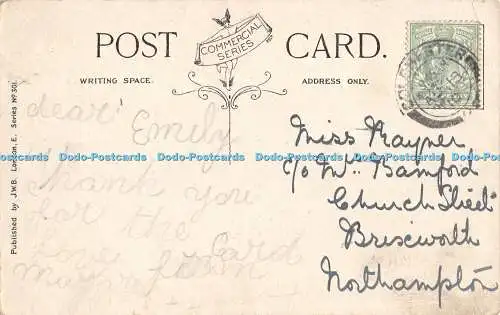 POST CARD.
COMMERCIAL
SERIES
WRITING SPACE.
ADDRESS ONLY.
Published by J.W.B. London, E. Series No 301
dear Emily
thank you
for the
Card
Miss Rayner
C/o Mrs Bamford
Church Street
Brixworth
Northampton
Dodo-Postcards Dodo-Postcards Dodo-Postcards Dodo-Postcards Dodo-Postcards